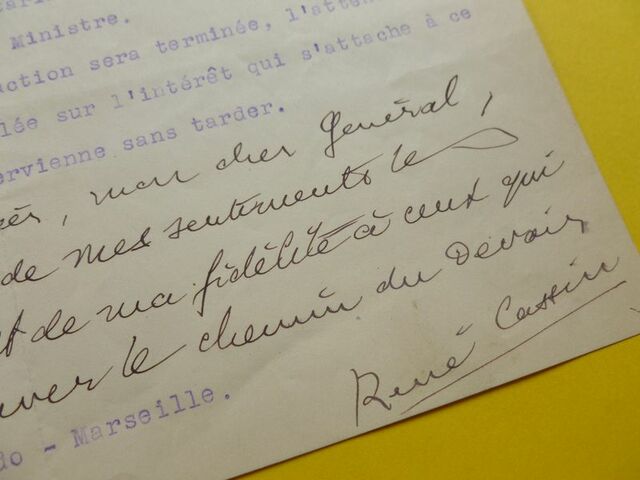 Ministre.
action sera terminée, l'atten
lée sur l'intérêt qui s'attache à ce
ervienne sans tarder.
mon cher Général,
de mes sentiments le
et de ma fidélité à ceux qui
uver le chemin du Devoir
René Cassin
do - Marseille.